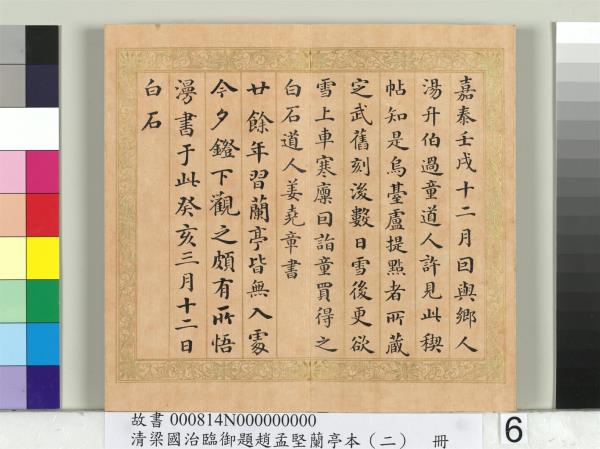 嘉泰壬戌十二月囙與鄉人
湯升伯過童道人許見此稧
帖知是烏臺盧提點者所藏
定武舊刻後數日雪後更欲
雪上車寒凛囙詣童買得之
白石道人姜堯章書
廿餘年習蘭亭皆無入處
今夕鐙下觀之頗有所悟
漫書于此癸亥三月十二日
白石
故書 000814N000000000
清梁國治臨御題趙孟堅蘭亭本（二） 冊
6